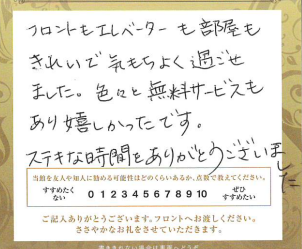 フロントもエレベーターも部屋も
きれいで気もちよく過ごせ
ました。色々と無料サービスも
あり嬉しかったです。
ステキな時間をありがとうございました
当館を友人や知人に勧める可能性はどのくらいあるか、点数で教えてください。
すすめたくない 0 1 2 3 4 5 6 7 8 9 10 ぜひすすめたい
ご記入ありがとうございます。フロントへお渡しください。
ささやかなお礼をさせていただきます。